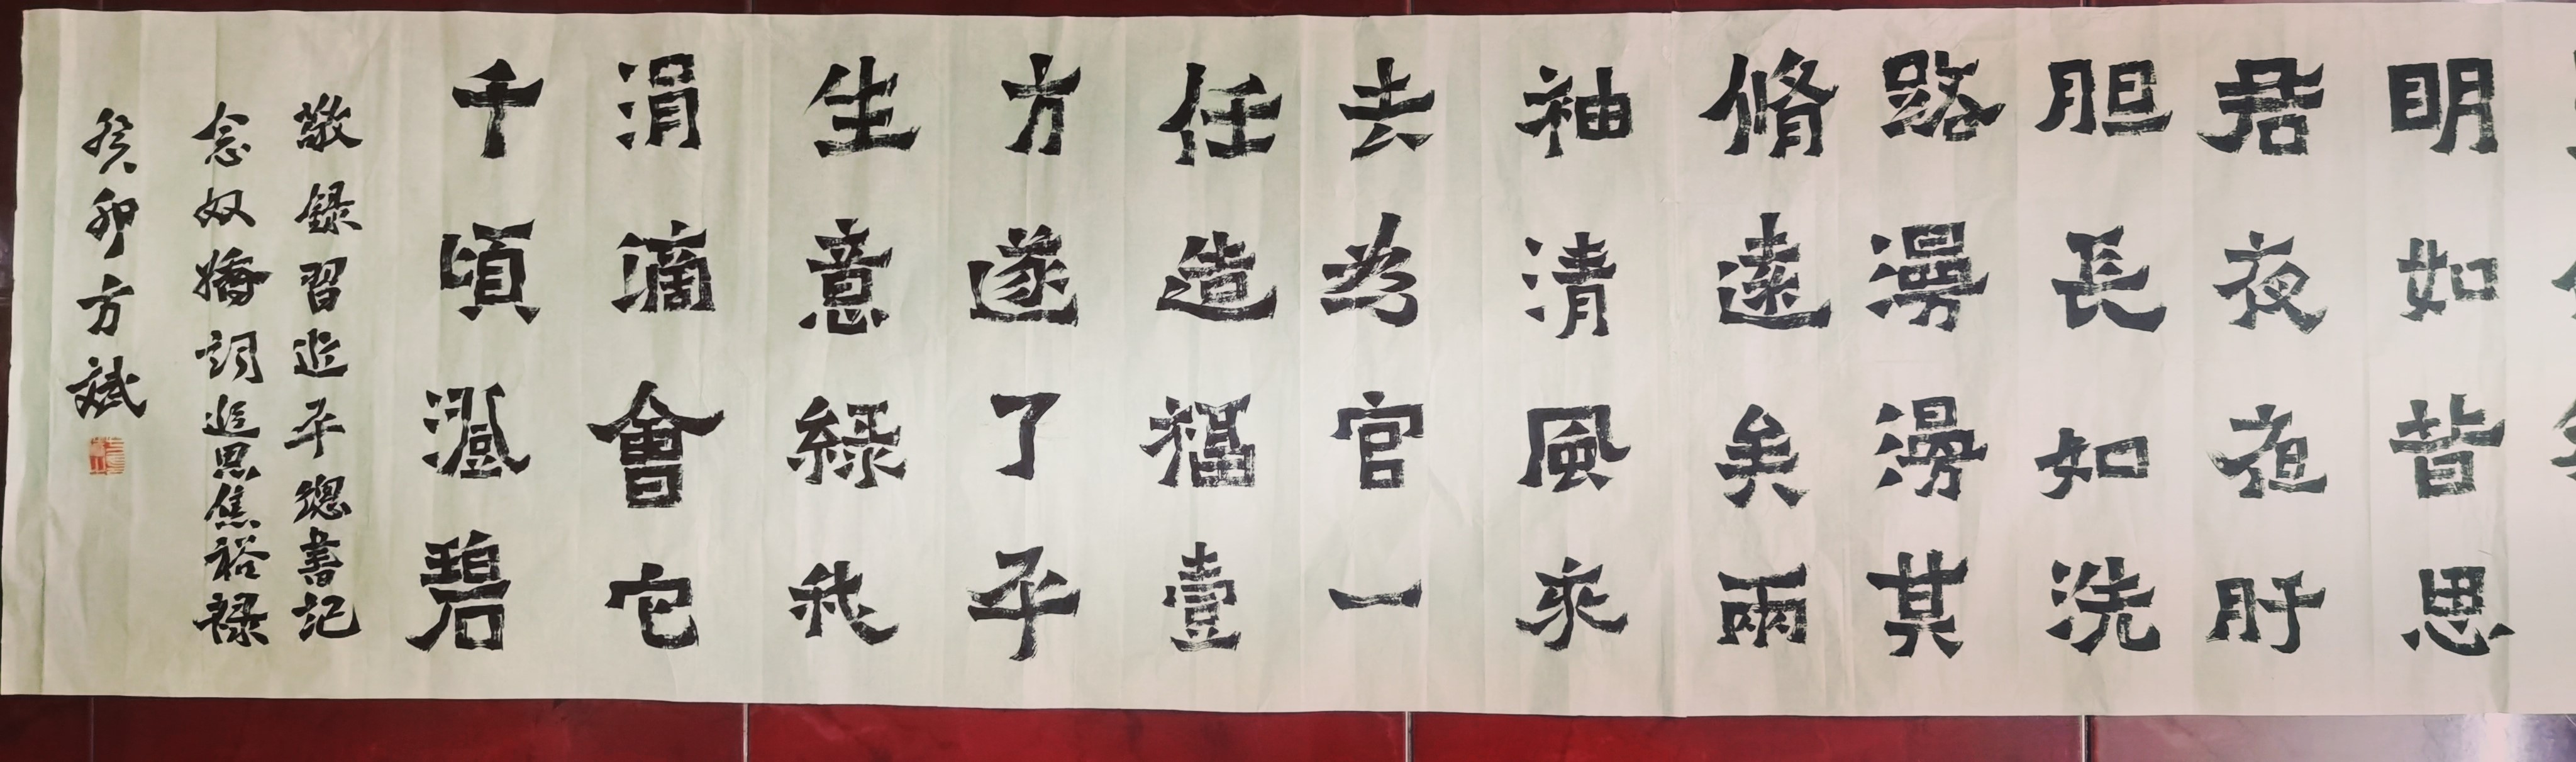 明如昔思
君夜夜肝
胆長如洗
路漫漫其
脩遠矣兩
袖清風來
去为官一
任造福壹
方遂了平
生意緑我
涓滴會它
千頃澄碧
敬録習近平總書記
念奴嬌詞追思焦裕禄
癸卯方斌